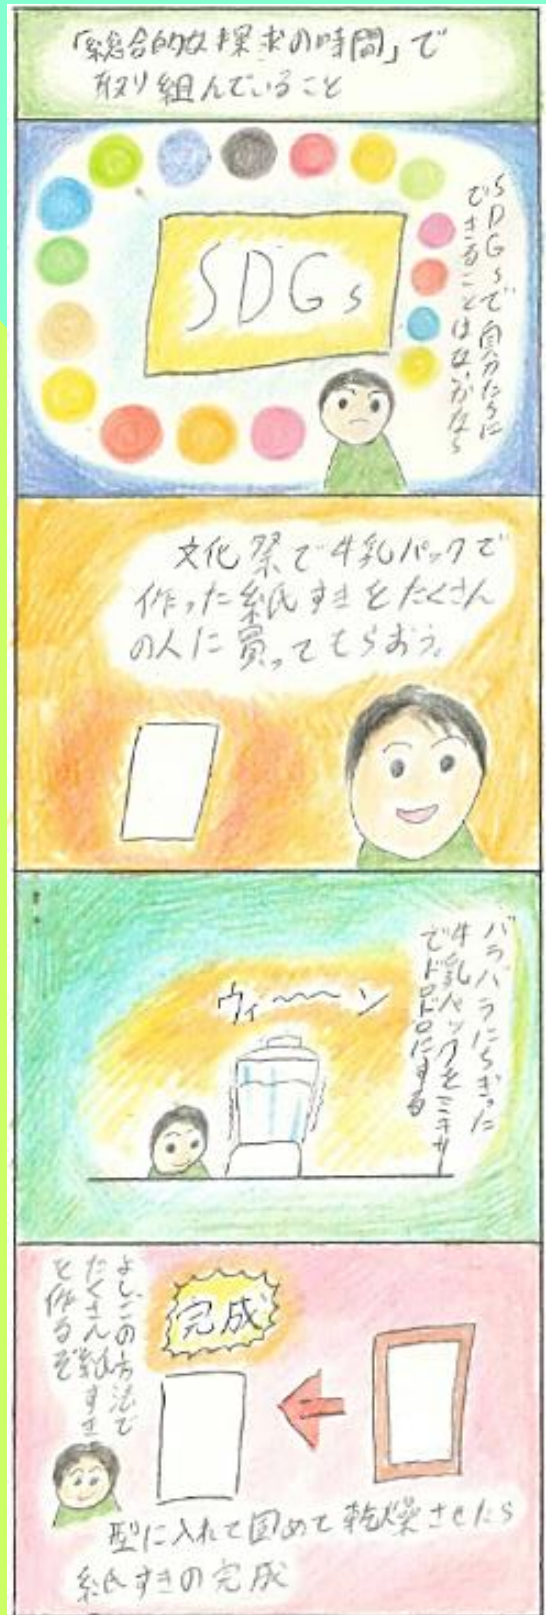 「総合的な探求の時間」で
取り組んでいること
SDGsで自分たちに
できることはないかなら
SDGs
文化祭で牛乳パックで
作った紙すきをたくさん
の人に買ってもらおう。
バラバラにちぎった
牛乳パックをミキサー
でドロドロにする
ウィ〜〜〜ン
よし、この方法で
たくさん紙すき
を作るぞ
完成
型に入れて固めて乾燥させたら
紙すきの完成